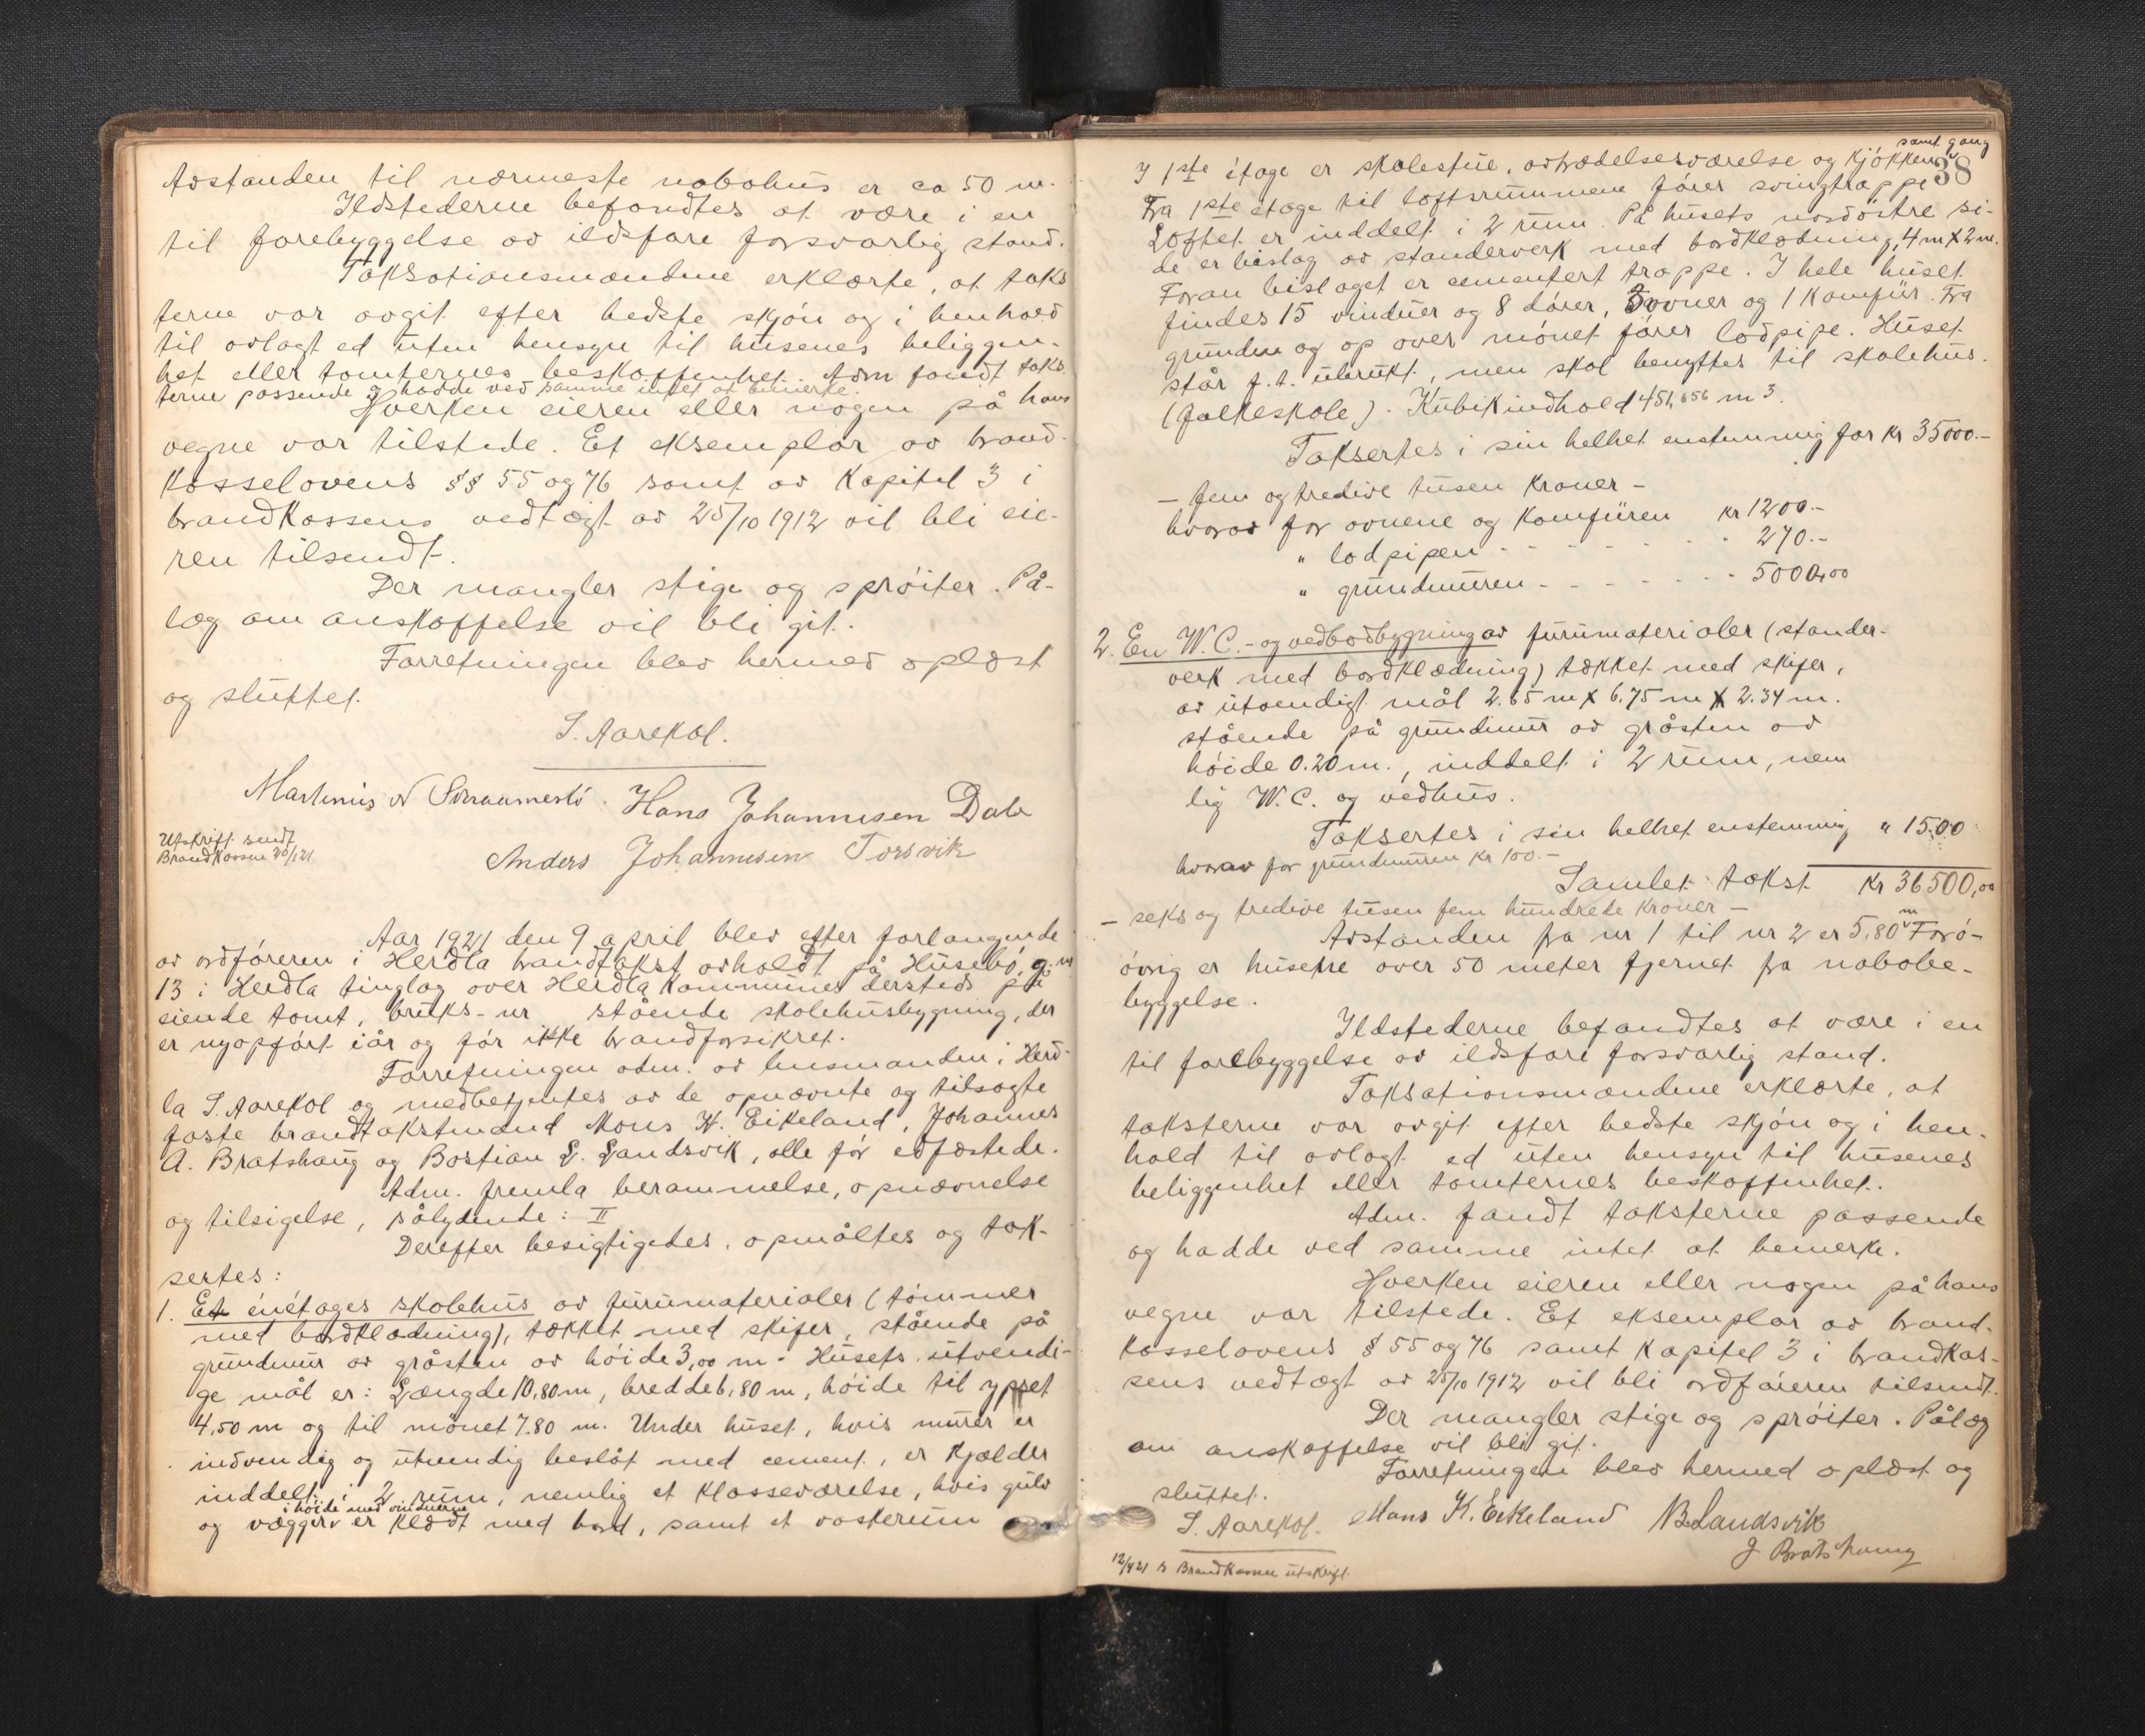 Avstanden til nærmeste nabohus er ca 50 m.
Ildstederne befandtes at være i en
til forebyggelse av ildsfare forsvarlig stand.
Taksationsmændene erklærte, at taks
terne var avgit efter bedste skjøn og i henhold
til avlagt ed uten hensyn til husenes beliggen-
het eller tomternes beskaffenhet. Adm fandt taks
terne passende og hadde ved samme intet at bemerke.
Hverken eieren eller nogen på hans
vegne var tilstede. Et eksemplar av brand-
kasselovens §§ 55 og 76 samt av Kapitel 3 i
brandkassens vedtægt av 25/10 1912 vil bli eie-
ren tilsendt.
Der mangler stige og sprøiter. På-
læg om anskaffelse vil bli git.
Forretningen blev hermed oplæst
og sluttet.
S. Aarekol.
Martinus N Hans Johannesen Dale
Utskrift sendt
Brandkassen
Anders Johannesen Torsvik
Aar 1921 den 9 april blev efter forlangende
av ordføreren i Herdla brandtakst avholdt på Husebø, g. nr
13 i Herdla tinglag over Herdla Kommunes dersteds på
eiende tomt, bruks-nr stående skolehusbygning, der
er nyopført iår og før ikke brandforsikret.
Forretningen adm. av lensmanden i Herd-
la S. Aarekol og medbetjentes av de opnævnte og tilsagte
faste brandtakstmænd Mons K. Eikeland, Johannes
A. Bratshaug og Bastian L. Landsvik, alle før edfæstede.
Adm. fremla berammelse, opnævnelse
og tilsigelse, sålydende: II
Derefter besigtigedes, opmåltes og tak-
sertes:
1. Et énétages skolehus av furumaterialer (tømmer
med bordklædning), tækket med skifer, stående på
grundmur av gråsten av høide 3,00 m. Husets utvendi-
ge mål er: Længde 10,80 m, bredde 6,80 m, høide til gpset
4,50 m og til mønet 7.80 m. Under huset, hvis murer er
indvendig og utvendig beslåt med cement, er Kjælder
inddelt i 2 rum, nemlig et klasseværelse, hvis gulv
i høide med vinduerne
og vægger er klædt med bord, samt et vaskerum
samt gang
38
I 1ste étage er skolestue, avtrædelsesværelse og Kjøkken
Fra 1ste étage til loftsrummene fører svingtrappe
Loftet er inddelt i 2 rum. På husets nordøstre si-
de er bislag av standerverk med bordklædning, 4 m X 2 m.
Foran bislaget er cementert trappe. I hele huset
findes 15 vinduer og 8 dører, 3 ovner og 1 Komfur. Fra
grunden og op over mønet fører lodpipe. Huset
står f. t. ubrukt, men skal benyttes til skolehus.
(folkeskole). Kubikindhold 451,656 m3.
Taksertes i sin helhet enstemmig for kr 35000.-
- fem og tredive tusen Kroner -
hvorav for ovnene og Komfuren kr 1200.-
" lodpipen - - - - - - 270.-
" grundmuren - - - - - - 5000,00
2. En W.C.- og vedbodbygning av furumaterialer (stander-
verk med bordklædning) tækket med skifer,
av utvendigt mål 2.65 m X 6.75 m X 2.34 m.
stående på grundmur av gråsten av
høide 0.20 m., inddelt i 2 rum, nem
lig W.C. og vedhus.
Taksertes i sin helhet enstemmig " 1500
hvorav for grundmuren kr 100.-
Samlet takst kr 36500,00
- seks og tredive tusen fem hundrede Kroner -
Avstanden fra nr 1 til nr 2 er 5,80 m Forø-
øvrig er husene over 50 meter fjernet fra nabobe-
byggelse.
Ildstederne befandtes at være i en
til forebyggelse av ildsfare forsvarlig stand.
Taksationsmændene erklærte, at
taksterne var avgit efter bedste skjøn og i hen-
hold til avlagt ed uten hensyn til husenes
beliggenhet eller tomternes beskaffenhet.
Adm. fandt taksterne passende
og hadde ved samme intet at bemerke.
Hverken eieren eller nogen på hans
vegne var tilstede. Et eksemplar av brand-
kasselovens § 55 og 76 samt Kapitel 3 i brandkas-
sens vedtægt av 25/10 1912 vil bli ordføreren tilsendt.
Der mangler stige og sprøiter. Pålæg
om anskaffelse vil bli git.
Forretningen blev hermed oplæst og
sluttet.
S. Aarekol. Mons K. Eikeland B Landsvik
J Bratshaug
12/4 21 Brandkassen utskrift